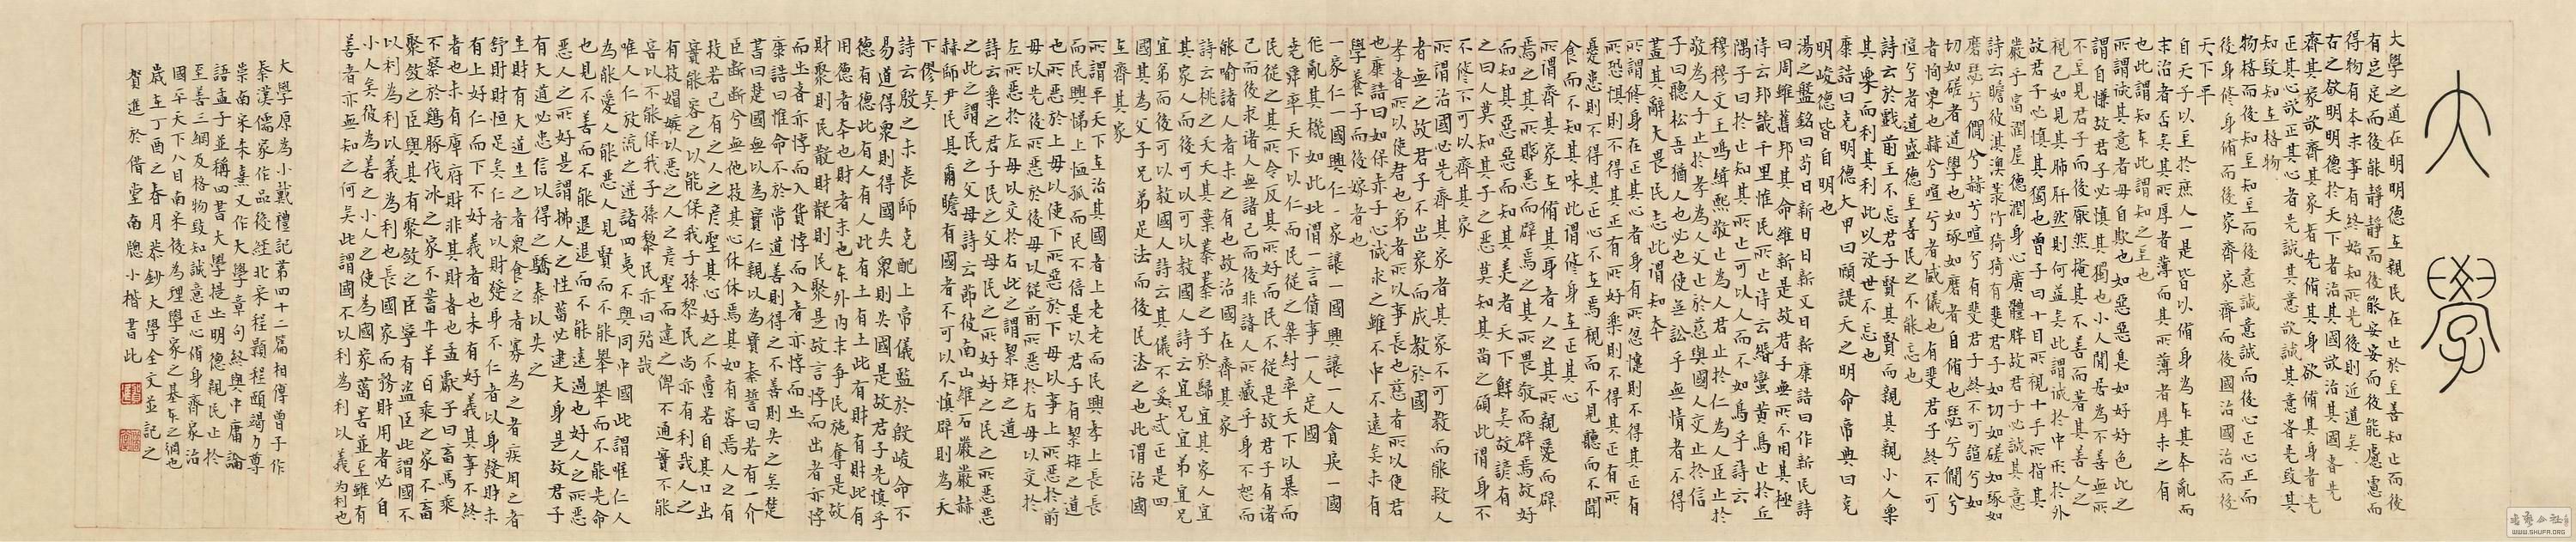 大學
大學之道在明明德在親民在止於至善知止而後
有定定而後能靜靜而後能安安而後能慮慮而后能
得物有本末事有終始知所先後則近道矣
古之欲明明德於天下者先治其國欲治其國者先
齊其家欲齊其家者先脩其身欲脩其身者先
正其心欲正其心者先誠其意欲誠其意者先致其
知致知在格物
物格而後知至知至而後意誠意誠而後心正心正而
後身脩身脩而後家齊家齊而後國治國治而後
天下平
自天子以至於庶人一是皆以脩身為本其本亂而
末治者否矣其所厚者薄而其所薄者厚未之有
也此謂知本此謂知之至也
所謂誠其意者毋自欺也如惡惡臭如好好色此之
謂自慊故君子必慎其獨也小人閒居為不善無所
不至見君子而後厭然揜其不善而著其善人之
視己如見其肺肝然則何益矣此謂誠於中形於外
故君子必慎其獨也曾子曰十目所視十手所指其
嚴乎富潤屋德潤身心廣體胖故君子必誠其意
詩云瞻彼淇澳菉竹猗猗有斐君子如切如磋如琢如
磨瑟兮僩兮赫兮喧兮有斐君子終不可諠兮如
切如磋者道學也如琢如磨者自脩也瑟兮僩兮
者恂慄也赫兮喧兮者威儀也有斐君子終不可
諠兮者道盛德至善民之不能忘也
詩云於戲前王不忘君子賢其賢而親其親小人樂
其樂而利其利此以沒世不忘也
康誥曰克明德大甲曰顧諟天之明命帝典曰克
明峻德皆自明也
湯之盤銘曰苟日新日日新又日新康誥曰作新民詩
曰周雖舊邦其命維新是故君子無所不用其極
詩云邦畿千里惟民所止詩云緡蠻黃鳥止於丘
隅子曰於止知其所止可以人而不如鳥乎詩云
穆穆文王於緝熙敬止為人君止於仁為人臣止於
敬為人子止於孝為人父止於慈與國人交止於信
子曰聽訟吾猶人也必也使無訟乎無情者不得
盡其辭大畏民志此謂知本
所謂修身在正其心者身有所忿懥則不得其正有
所恐懼則不得其正有所好樂則不得其正有所
憂患則不得其正心不在焉視而不見聽而不聞
食而不知其味此謂修身在正其心
所謂齊其家在脩其身者人之其所親愛而辟
焉之其所賤惡而辟焉之其所畏敬而辟焉故好
而知其惡惡而知其美者天下鮮矣故諺有
之曰人莫知其子之惡莫知其苗之碩此謂身不
修不可以齊其家
所謂治國必先齊其家者其家不可教而能教人
者無之故君子不出家而成教於國
孝者所以事君也弟者所以事長也慈者所以使眾
也康誥曰如保赤子心誠求之雖不中不遠矣未有
學養子而後嫁者也
一家仁一國興仁一家讓一國興讓一人貪戾一國
作亂其機如此此謂一言僨事一人定國
堯舜率天下以仁而民從之桀紂率天下以暴而
民從之其所令反其所好而民不從是故君子有諸
己而後求諸人無諸己而後非諸人所藏乎身不恕而
能喻諸人者未之有也故治國在齊其家
詩云桃之夭夭其葉蓁蓁之子於歸宜其家人宜
其家人而後可以教國人詩云宜兄宜弟宜兄
宜弟而後可以教國人詩云其儀不忒正是四
國其為父子兄弟足法而後民法之也此謂治國
在齊其家
所謂平天下在治其國者上老老而民興孝上長長
而民興悌上恤孤而民不倍是以君子有絜矩之道
也所惡於上毋以使下所惡於下毋以事上所惡於前
毋以先後所惡於後毋以從前所惡於右毋以交於
左所惡於左毋以交於右此之謂絜矩之道
詩云樂之君子民之父母民之所好好之民之所惡惡
之此之謂民之父母詩云節彼南山維石巖巖赫
赫師尹民具爾瞻有國者不可以不慎辟則為天
下僇矣
詩云殷之未喪師克配上帝儀監於殷峻命不
易道得眾則得國失眾則失國是故君子先慎乎
德有德此有人有人此有土有土此有財有財此有
用德者本也財者末也外本內末爭民施奪是故
財聚則民散財散則民聚是故言悖而出者亦悖
而入貨悖而入者亦悖而出
康誥曰惟命不於常道善則得之不善則失之矣楚
書曰楚國無以為寶仁親以為寶秦誓曰若有一介
臣斷斷兮無他技其心休休焉其如有容焉人之有
技若己有之人之彥聖其心好之不啻若自其口出
寔能容之以能保我子孫黎民尚亦有利哉人之
有技媢嫉以惡之人之彥聖而違之俾不通寔不能
容以不能保我子孫黎民亦曰殆哉
唯仁人放流之迸諸四夷不與同中國此謂唯仁人
為能愛人能惡人見賢而不能舉舉而不能先命
也見不善而不能退退而不能遠過也好人之所惡
惡人之所好是謂拂人之性菑必逮夫身是故君子
有大道必忠信以得之驕泰以失之
生財有大道生之者眾食之者寡為之者疾用之者
舒則財恒足矣仁者以財發身不仁者以身發財未
有上好仁而下不好義者也未有好義其事不終
者也未有庫府財非其財者也孟獻子曰畜馬乘
不察於雞豚伐冰之家不畜牛羊百乘之家不畜
聚斂之臣與其有聚斂之臣寧有盜臣此謂國不
以利為利以義為利也長國家而務財用者必自
小人矣彼為善之小人之使為國家菑害並至雖有
善者亦無知之何矣此謂國不以利為利以義為利也
大學原為小戴禮記第四十二篇相傳曾子作
秦漢儒家作品後經北宋程顥程頤竭力尊
崇南宋朱熹又作大學章句終與中庸論
語孟子並稱四書大學提出明德親民止於
至善三綱及格物致知誠意正心脩身齊家治
國平天下八目南宋後為理學家之基本之綱也
歲在丁酉之春月恭鈔大學全文並記之
賀進於借堂南牕小楷書此
WWW.SHUFA.ORG